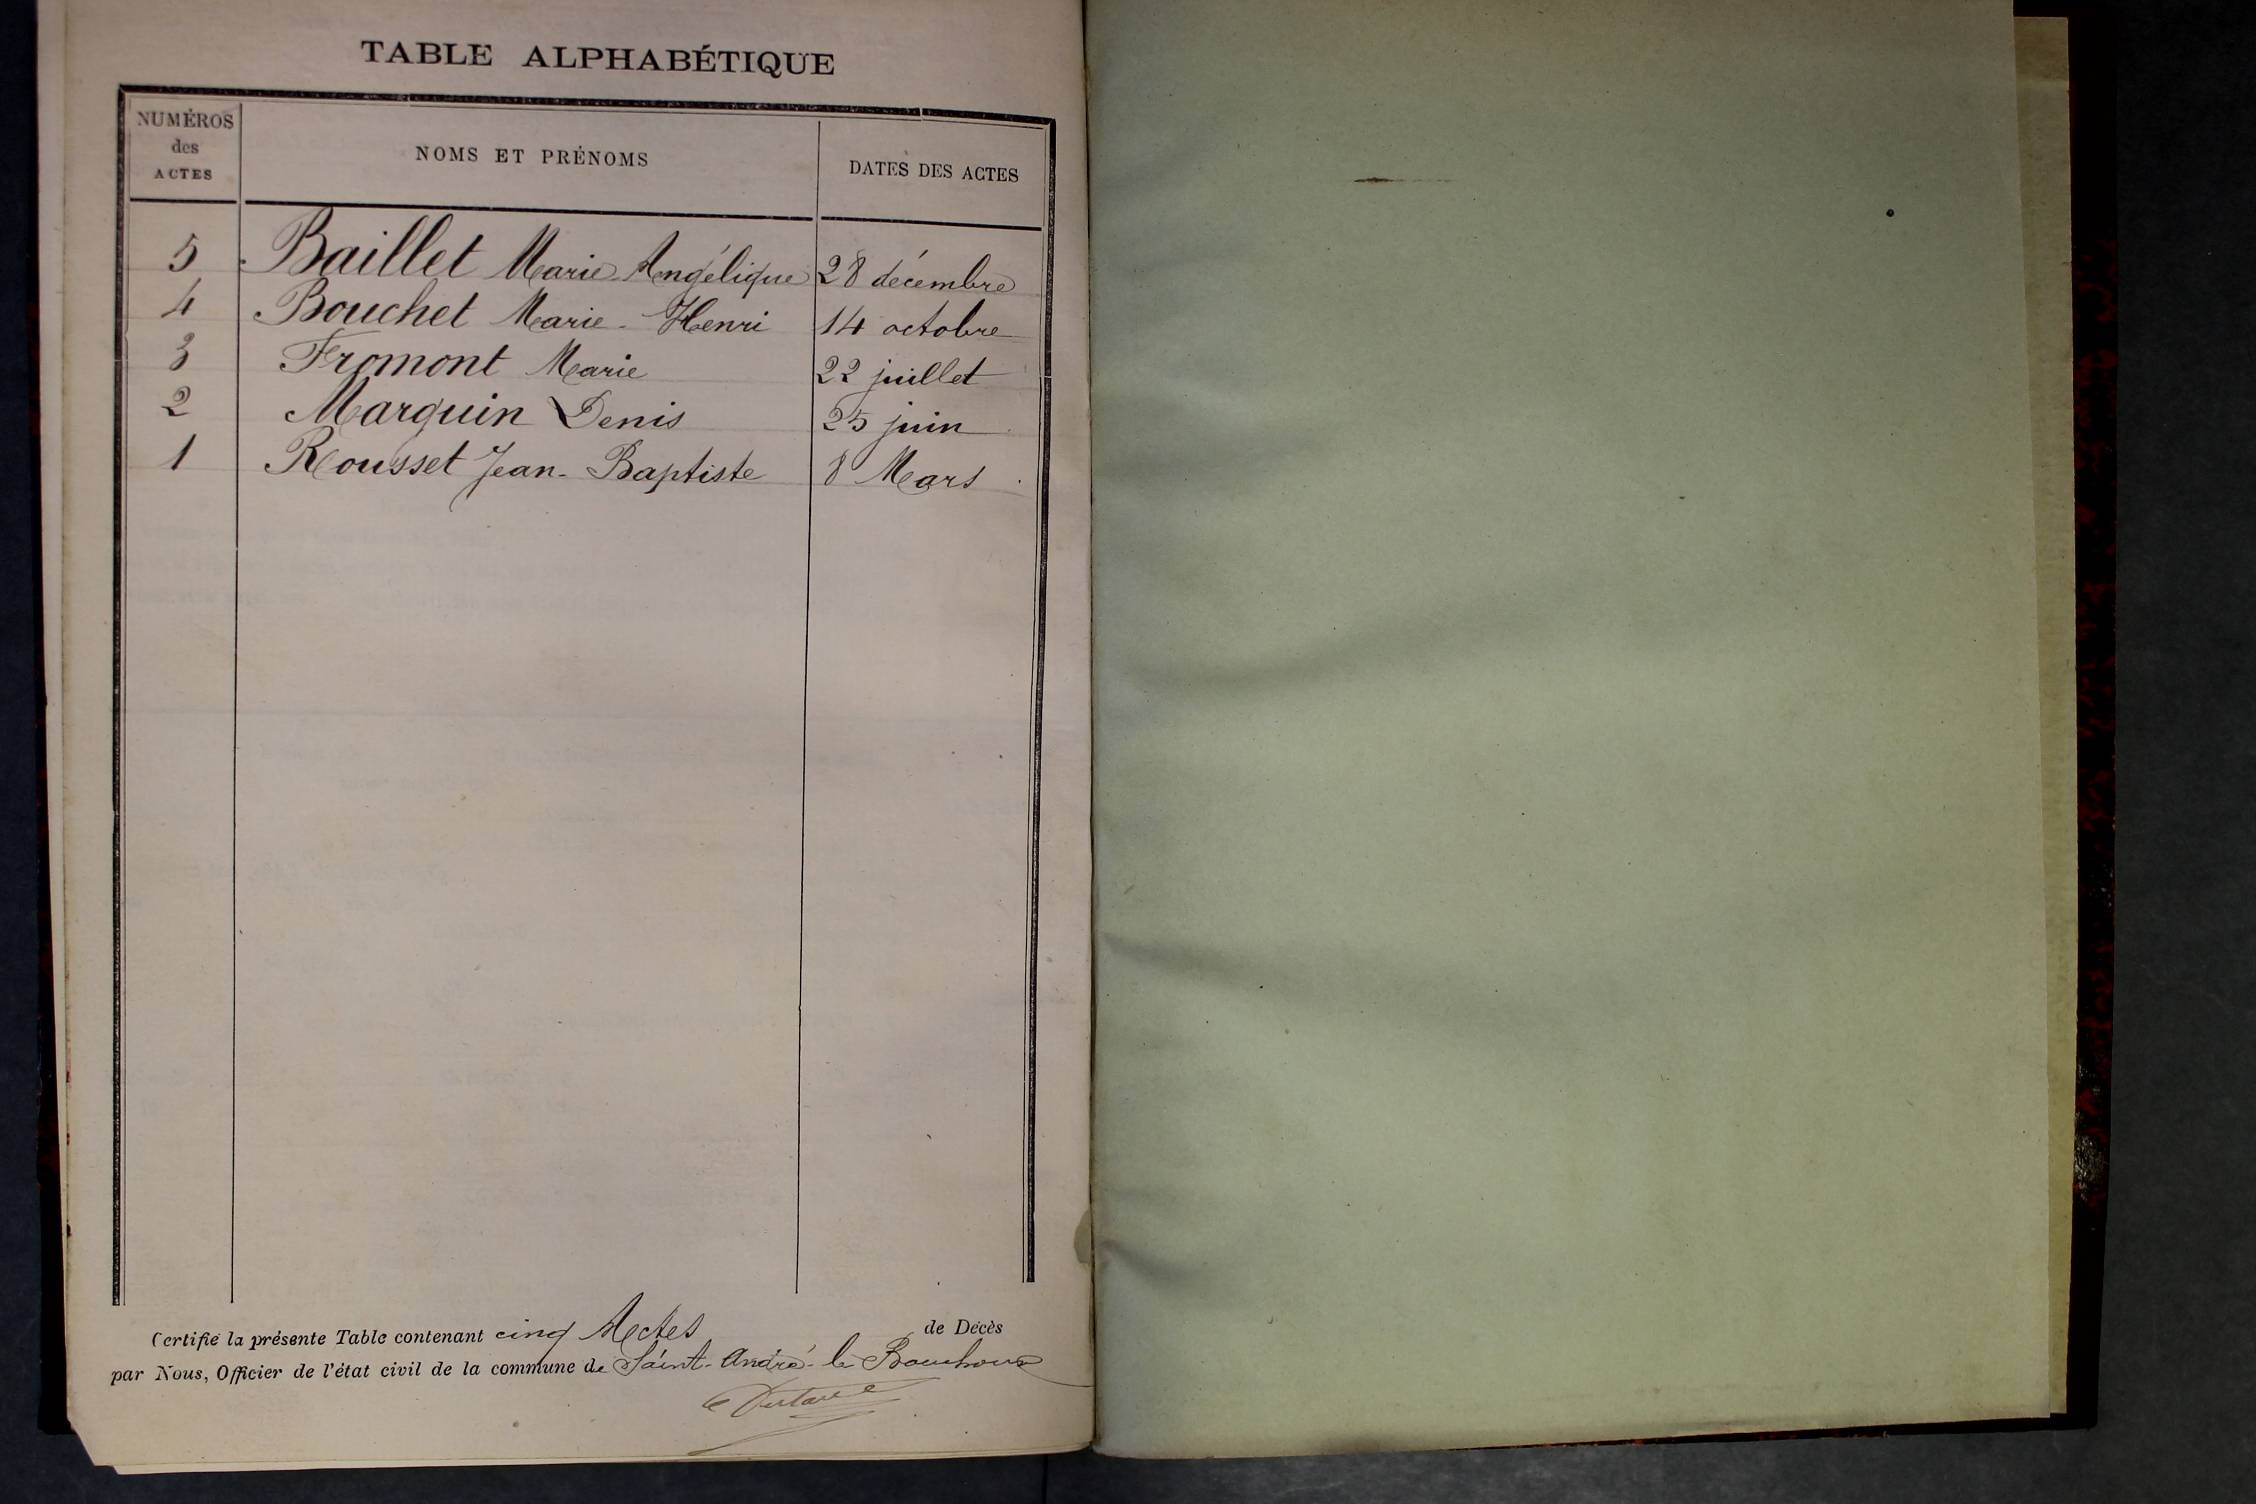 TABLE ALPHABÉTIQUE
NUMÉROS des ACTES NOMS ET PRÉNOMS DATES DES ACTES
5 Baillet Marie-Angélique 28 décembre
4 Bouchet Marie-Henri 14 octobre
3 Fromont Marie 22 juillet
2 Marguin Denis 25 juin
1 Rousset Jean-Baptiste 8 Mars
Certifié la présente Table contenant cinq Actes de Décès
par Nous, Officier de l'état civil de la commune de Saint-André-le Bouchoux